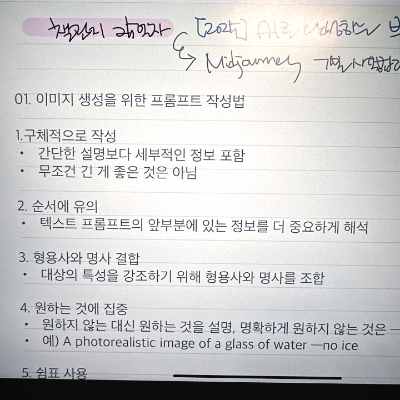 [2025] AI로
Midjourney
01. 이미지 생성을 위한 프롬프트 작성법
1.구체적으로 작성
• 간단한 설명보다 세부적인 정보 포함
• 무조건 긴 게 좋은 것은 아님
2. 순서에 유의
• 텍스트 프롬프트의 앞부분에 있는 정보를 더 중요하게 해석
3. 형용사와 명사 결합
• 대상의 특성을 강조하기 위해 형용사와 명사를 조합
4. 원하는 것에 집중
• 원하지 않는 대신 원하는 것을 설명, 명확하게 원하지 않는 것은 —
• 예) A photorealistic image of a glass of water —no ice
5. 쉼표 사용